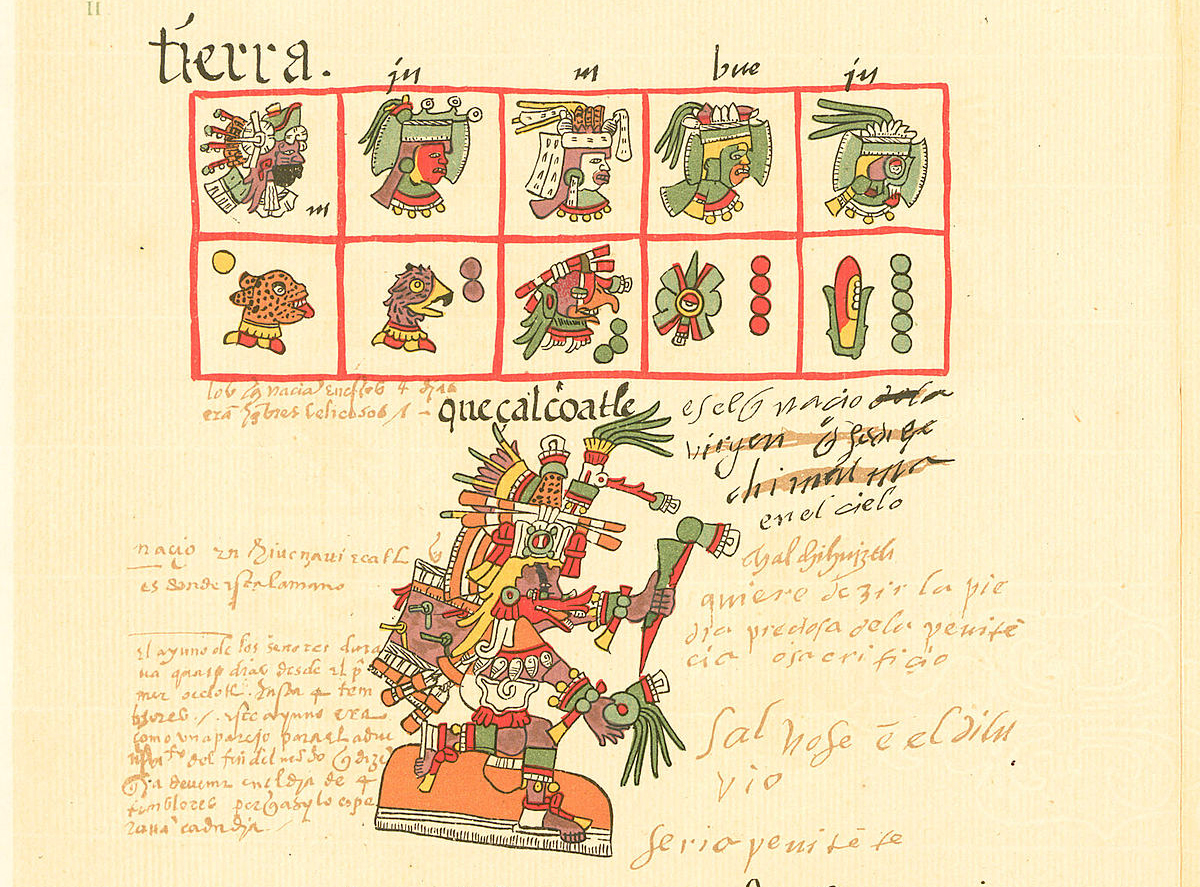 II
tierra.
ju m bue ju
m
los q̃ nacia en estos 4 dias
erã hõbres belicosos
queçalcoatle
es el q̃ nacio dela
virgen q̃ se dize
chimalma
en el cielo
nacio en
es donde esta la mano
chalchihuiztli
quiere dezir la pie
dra preciosa dela penitẽ
cia o sacrificio
el ayuno de los señores dura
ua quatro dias desde el pº
mer ocelotl. hasta 4 tem
blores / . este ayuno era
como un aparejo para el adue
del fin del mũdo q̃ dizẽ
a de venir en el dia de 4
temblores porq̃ asy lo espe
rauã cada dia
Salvose ẽ el dilu
vio
penitẽte